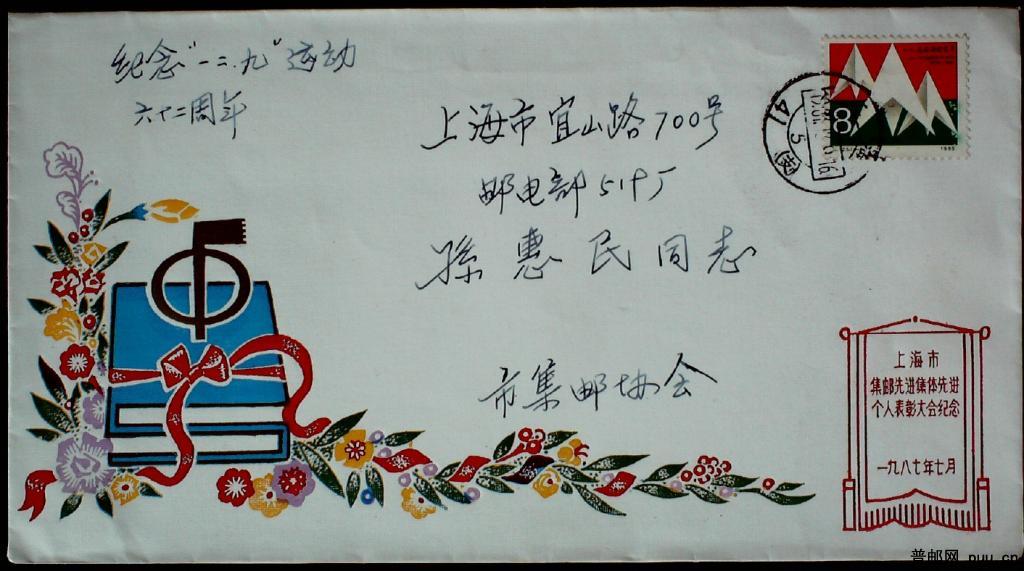 纪念"一二.九"运动
六十二周年
上海市宜山路700号
邮电部519厂
孫惠民同志
市集邮协会
8
1985
上海市
集邮先进集体先进
个人表彰大会纪念
一九八七年七月
普邮网 puu.cn